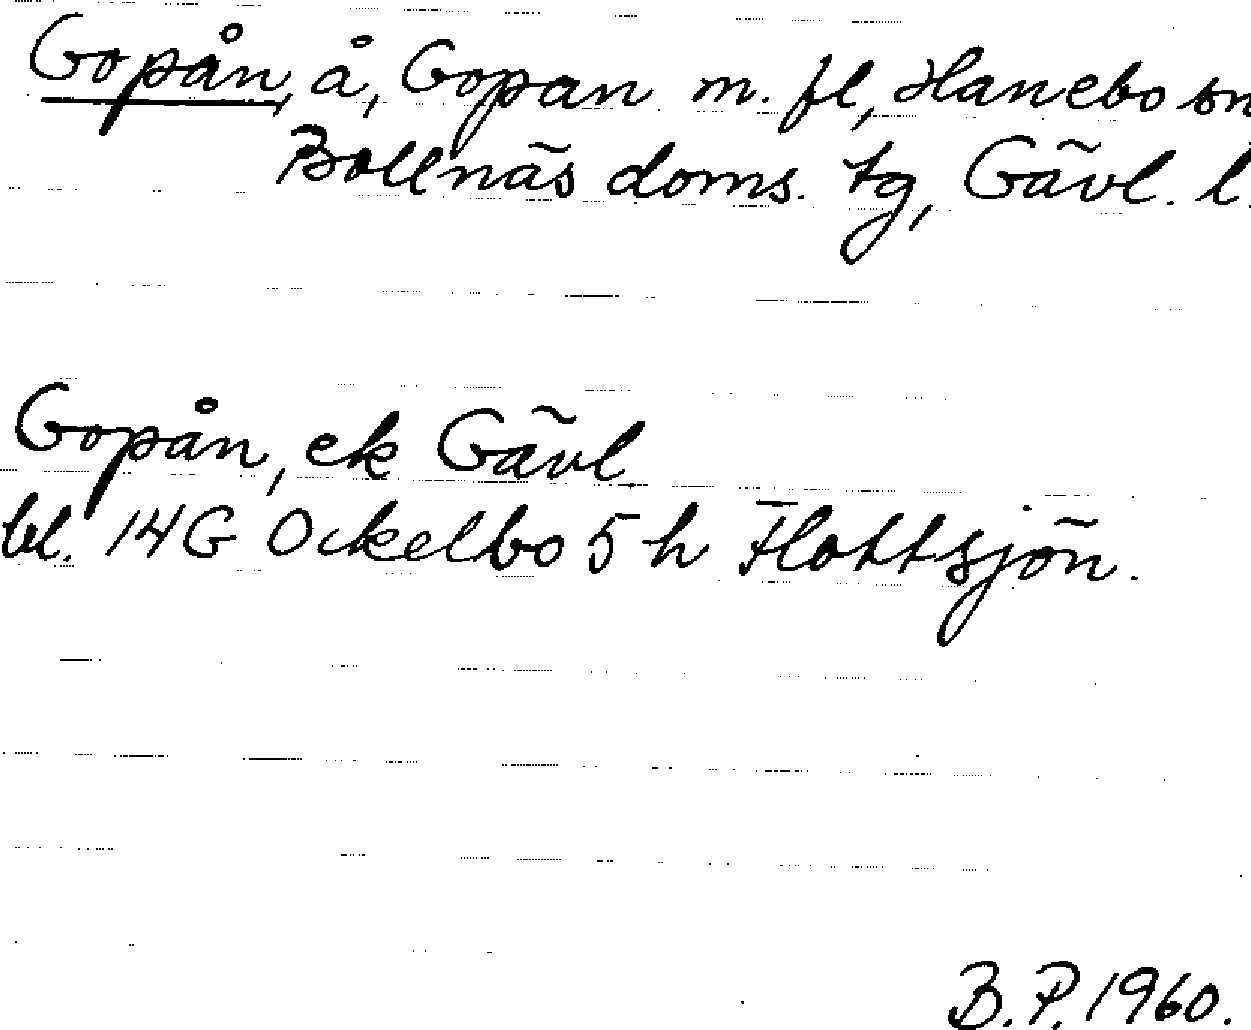 Gopån, å, Gopan m. fl, Hanebo sn
Bollnäs doms. tg, Gävl. l.
Gopån, ek Gävl.
bl. 14G Ockelbo 5h Flottsjön.
B.P. 1960.